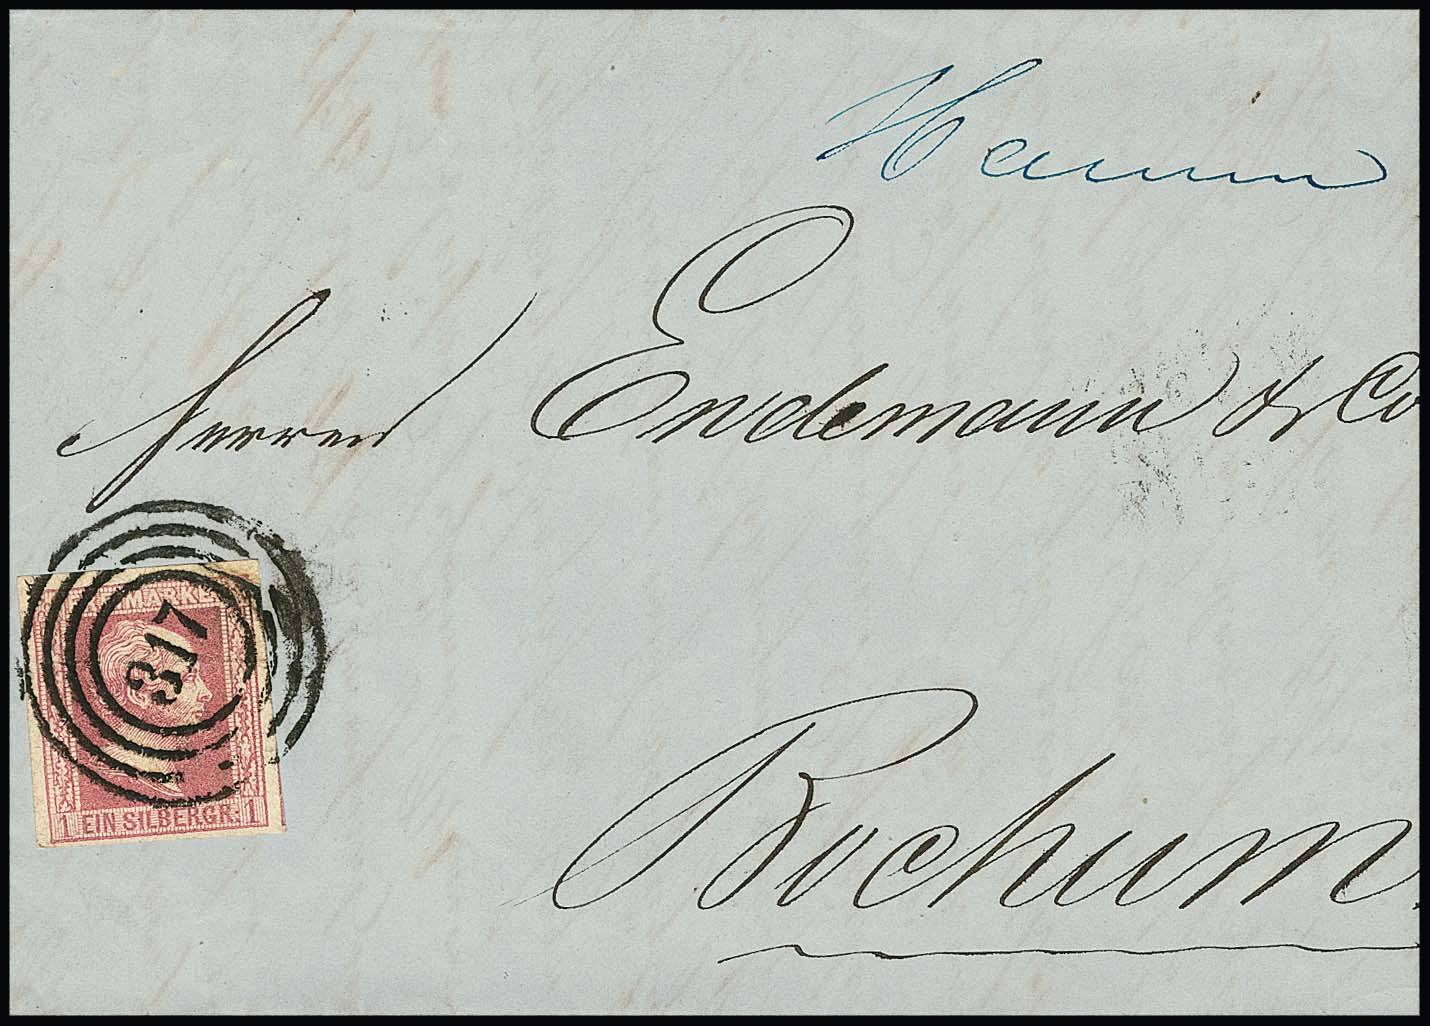 Hamm
Herren Endemann & Co
317
MARKE
1 EIN SILBERGR. 1
Bochum.